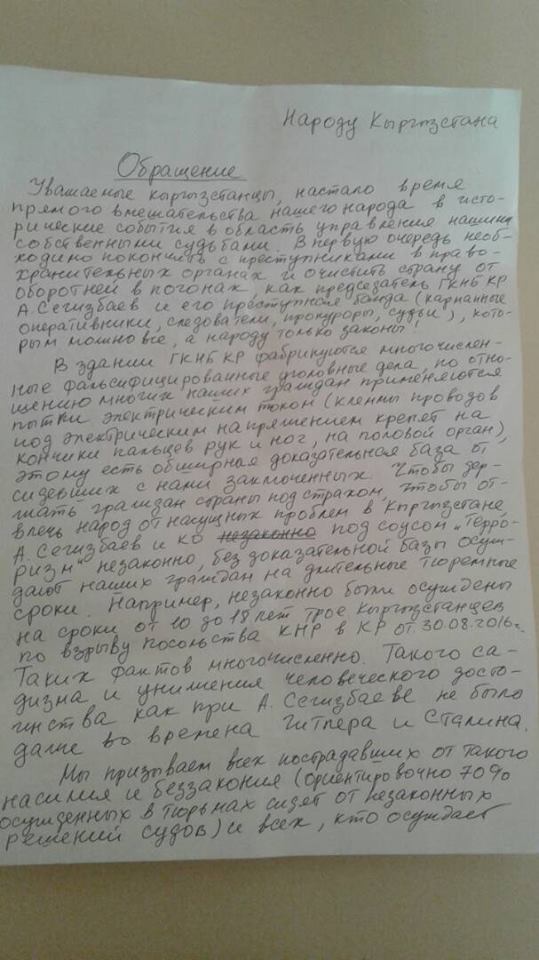 Народу Кыргызстана
Обращение
Уважаемые кыргызстанцы, настало время
прямого вмешательства нашего народа в исто-
рические события в область управления нашими
собственными судьбами. В первую очередь необ-
ходимо покончить с преступниками в право-
хранительных органах и очистить страну от
оборотней в погонах, как председатель ГКНБ КР
А. Сегизбаев и его преступная банда (карманные
оперативники, следователи, прокуроры, судьи), кото-
рым можно все, а народу только законы!
В здании ГКНБ КР фабрикуются многочислен-
ные фальсифицированные уголовные дела, по отно-
шению многих наших граждан применяются
пытки электрическим током (клеммы проводов
под электрическим напряжением крепят на
кончики пальцев рук и ног, на половой орган),
этому есть обширная доказательная база от
сидевших с нами заключенных. Чтобы дер-
жать граждан страны под страхом, чтобы от-
влечь народ от насущных проблем в Кыргызстане,
А. Сегизбаев и КО незаконно под соусом „Терро-
ризм" незаконно, без доказательной базы осуж-
дают наших граждан на длительные тюремные
сроки. Например, незаконно были осуждены
на сроки от 10 до 18 лет трое Кыргызстанцев
по взрыву Посольства КНР в КР от 30.08.2016г.
Таких фактов многочисленно. Такого са-
дизма и унижения человеческого досто-
инства как при А. Сегизбаеве не было
даже во времена Гитлера и Сталина.
Мы призываем всех пострадавших от такого
насилия и беззакония (ориентировочно 70%
осужденных в тюрьмах сидят от незаконных
решений судов) и всех, кто осуждает